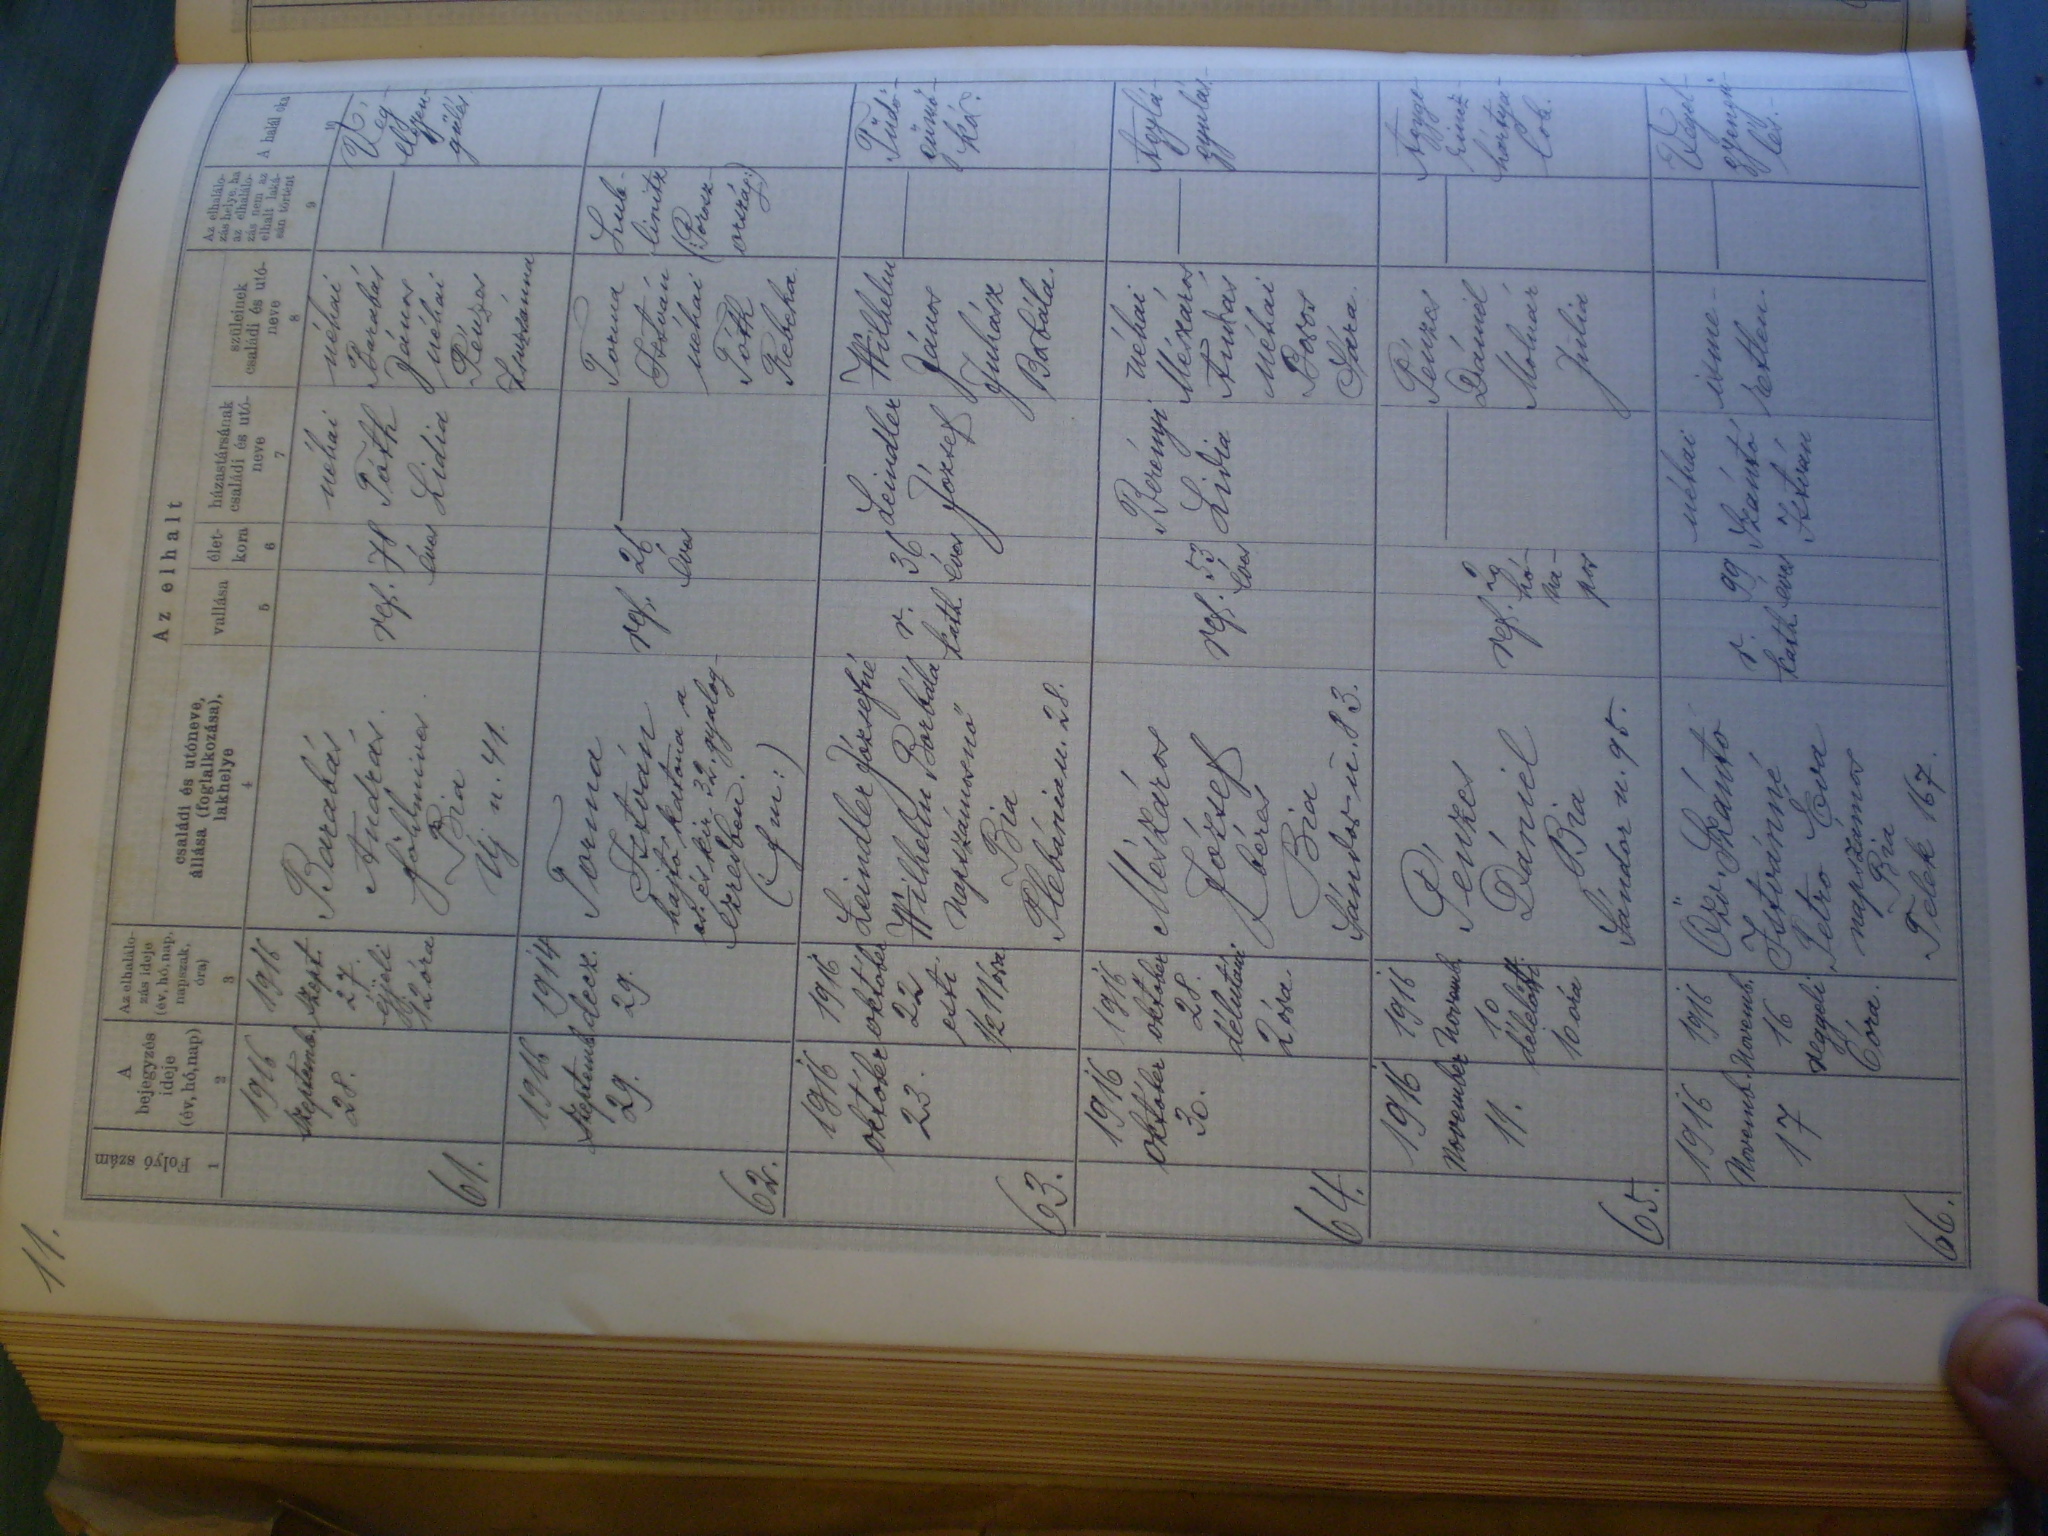 11.
Az elhalt
Folyó szám
A bejegyzés ideje (év, hó, nap)
Az elhalálo-
zás ideje
(év, hó, nap,
napszak,
óra)
családi és utóneve,
állása (foglalkozása),
lakhelye
vallása
élet-
kora
házastársának
családi és utó-
neve
szüleinek
családi és utó-
neve
Az elhalálo-
zás helye, ha
az elhalálo-
zás nem az
elhalt laká-
sán történt
A halál oka
1 2 3 4 5 6 7 8 9 10
61.
1916
Septemb.
28.
1916
Szept.
27.
éjjeli
12 óra
Barabás
András.
földmíves.
Bia
Új u. 41.
ref.
78
éves
néhai
Tóth
Lidia
néhai
Barabás
János
néhai
Pénzes
Zsuzsánna
—
Vég-
elgyen-
gülés
62.
1916
Septemb.
29.
1914
decz.
29.
Torna
István
hajtó katona a
cs. és kir. 32. gyalog-
ezredben.
ref.
26
éves
—
Torna
István
néhai
Tóth
Rebeka
Lub-
linitz
(Porosz-
ország:)
—
63.
1916
október
23.
1916
október
22
esti
1/2 11 óra
Leindler Józsefné
Wilhelm Borbála
napszámosnő
Bia
Plebánia u. 28.
r.
kath.
36
éves
Leindler
József
Wilhelm
János
Juhász
Borbála.
—
Tüdő-
gümő-
kór.
64.
1916
október
30.
1916
október
28.
délutáni
2 óra.
Mészáros
József
béres
Bia
Sándor-u. 83.
ref.
53
éves
Berényi
Lidia
néhai
Mészáros
András
néhai
Boros
Sára.
—
Agylá-
gyulás.
65.
1916
November
11.
1916
Novemb.
10
délelőtt
10 óra
Pénzes
Dániel
Bia
Sándor u. 95.
ref.
2
hó-
na-
pos
—
Pénzes
Dániel
Molnár
Julia
—
lob.
66.
1916
Novemb.
17
1916
Novemb.
16
reggeli
6 óra.
Özv. Szántó
Istvánné
Petro Éva
napszámos
Bia
Telek 167.
r.
kath.
99
éves
néhai
Szántó
István
isme-
retlen.
—
Végel-
gyengü-
lés.